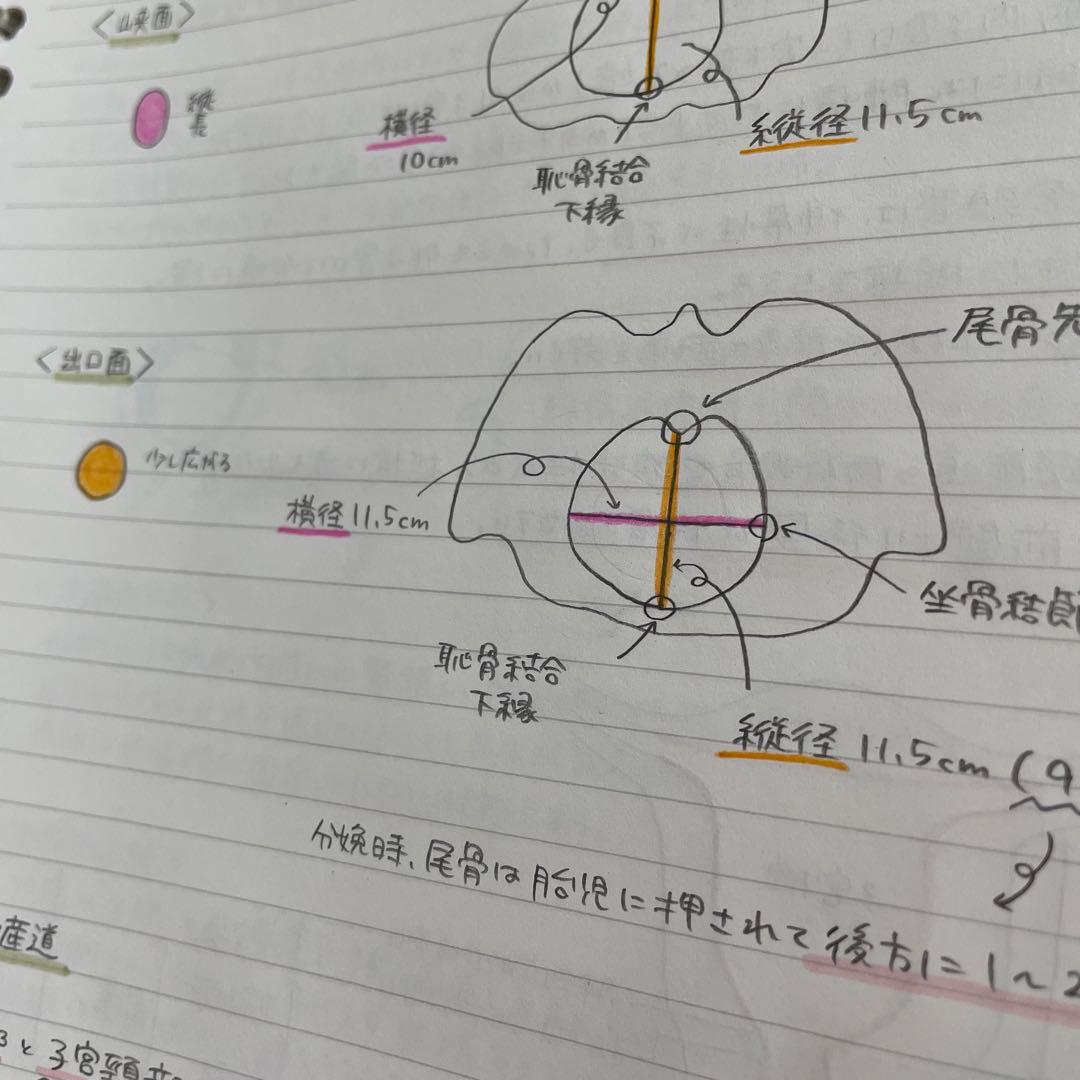 〈峡面〉
縦長
横径
10cm
縦径 11.5cm
恥骨結合
下縁
〈出口面〉
少し広がる
尾骨先
横径 11.5cm
坐骨結節
恥骨結合
下縁
縦径 11.5cm (9
分娩時、尾骨は胎児に押されて後方に1〜2
産道
と子宮頸